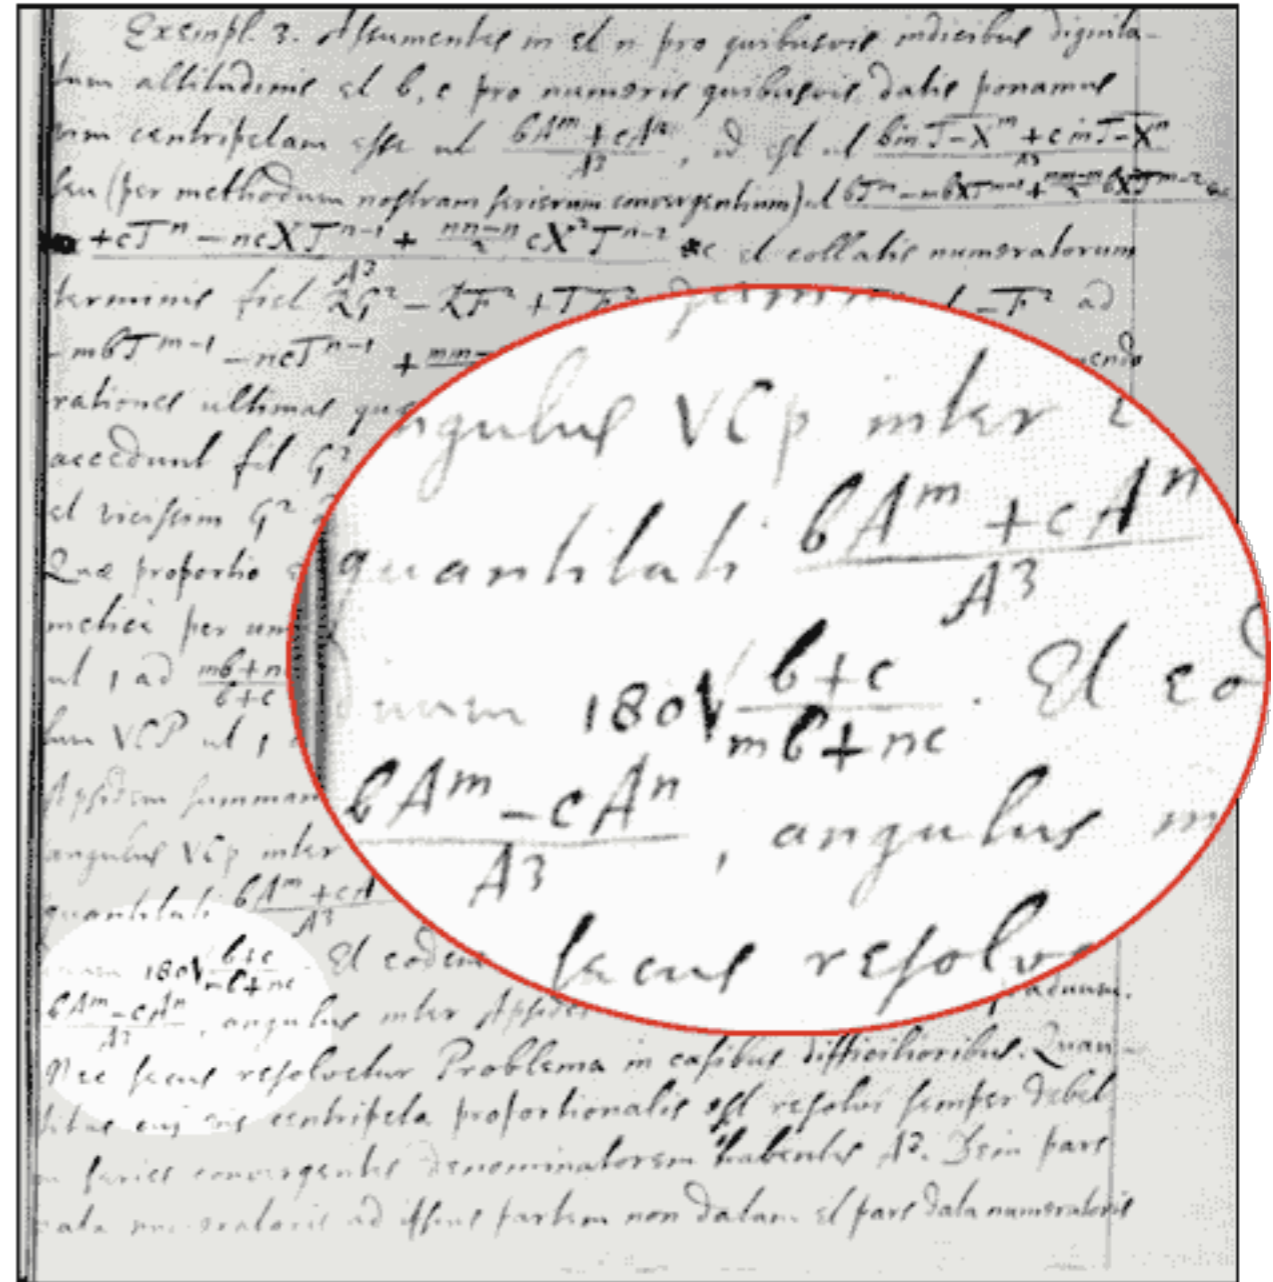 Exempl. 3. Assumentes m et n pro quibusvis indicibus dignita-
tum altitudinis et b, c pro numeris quibusvis datis ponamus
vim centripetam esse ut (bA^m + cA^n)/A3, id est ut (b in T−X^m + c in T−X^n)/A3
seu (per methodum nostram serierum convergentium) ut bT^m − mbXT^m-1 + (mm−m)/2 bX^2T^m-2 &c
+ cT^n − ncXT^n-1 + (nn−n)/2 cX^2T^n-2 &c / A3 et collatis numeratorum
terminis fiet RG^2 − RF^2 + TF^2 −F^2 ad
−mbT^m-1 − ncT^n-1 + mm−
rationes ultimas quæ
accedunt fit G^2
et vicissim G^2
Quæ proportio
metice per
ut 1 ad (mb+n)/(b+c)
VCP ut 1
Apsidem summam
angulus VCp inter
quantitati (bA^m + cA)/A3
180√(b+c)/(mb+nc) Et eodem
(bA^m − cA^n)/A3, angulus inter Apsides graduum.
Nec secus resolvetur Problema in casibus difficilioribus. Quan-
titas cui vis centripeta proportionalis est resolvi semper debet
in series convergentes denominatorem habentes A3. Dein pars
data numeratoris ad ipsius partem non datam et pars data numeratoris
angulus VCp inter
quantitati (bA^m + cA^n)/A3
180√(b+c)/(mb+nc). Et eo
(bA^m − cA^n)/A3, angulus
secus resolv